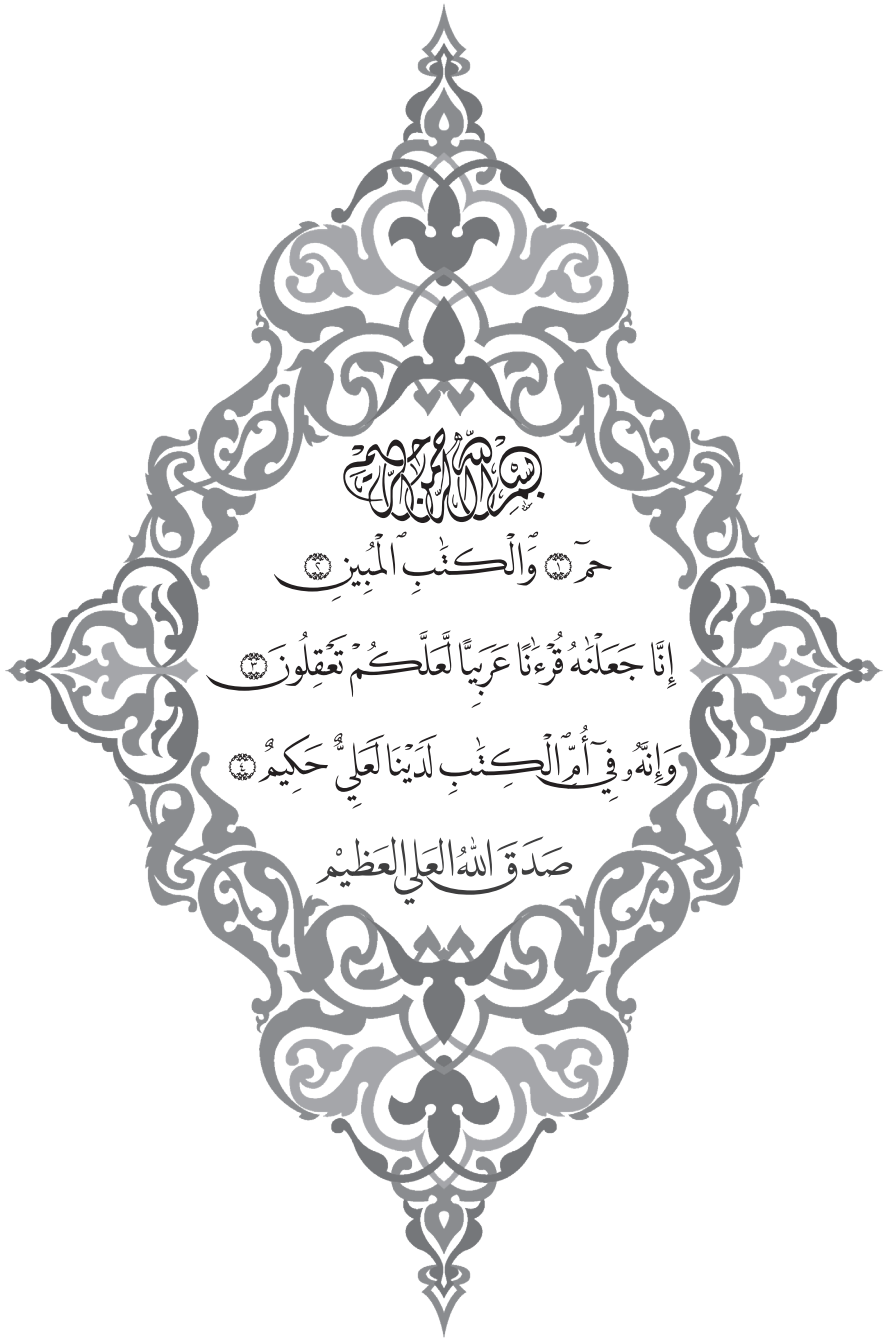 بِسْمِ اللَّهِ الرَّحْمَنِ الرَّحِيمِ
حمٓ ١ وَٱلْكِتَٰبِ ٱلْمُبِينِ ٢
إِنَّا جَعَلْنَٰهُ قُرْءَٰنًا عَرَبِيًّا لَّعَلَّكُمْ تَعْقِلُونَ ٣
وَإِنَّهُۥ فِىٓ أُمِّ ٱلْكِتَٰبِ لَدَيْنَا لَعَلِىٌّ حَكِيمٌ ٤
صَدَقَ اللهُ العَلي العَظيمْ